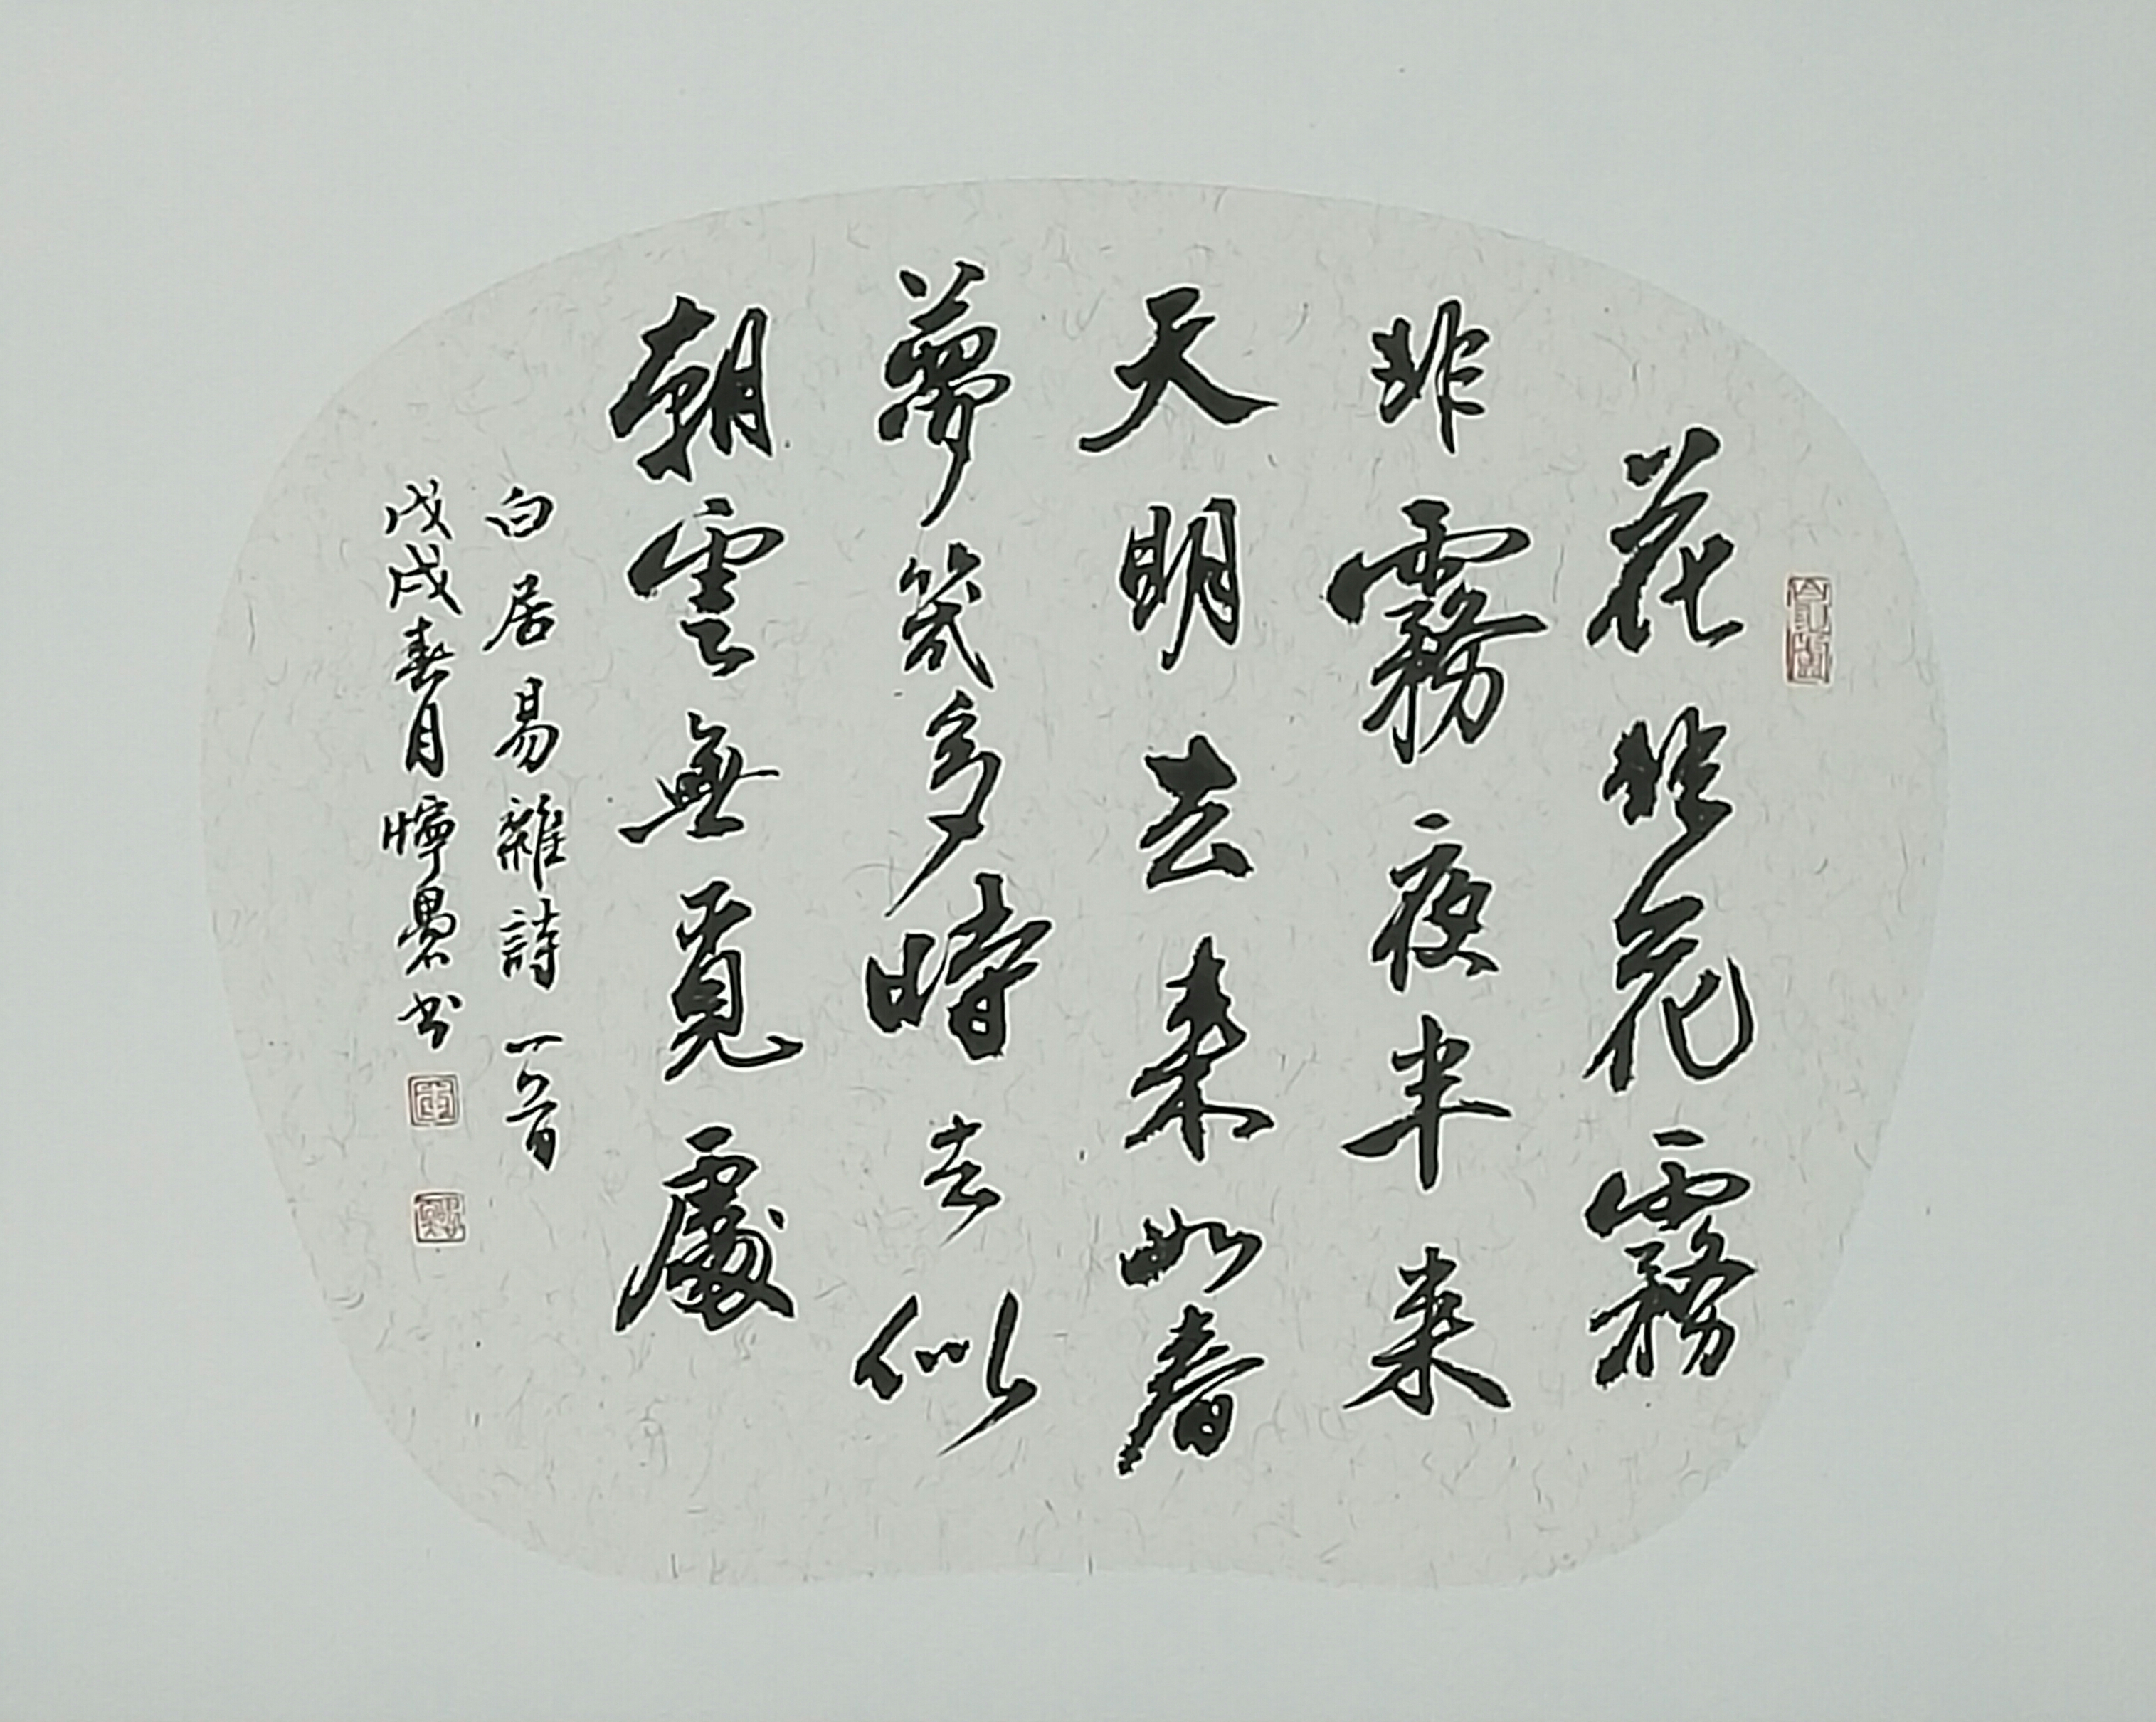 花非花霧
非霧夜半来
天明去来如春
夢幾多時去似
朝雲無覓處
白居易雜詩一首
戊戌春月